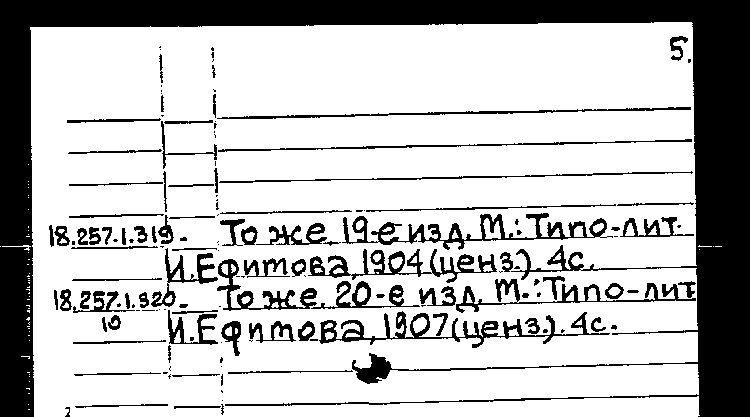 5.
18.257.1.319. - То же. 19-е изд. М.: Типо-лит.
И. Ефимова, 1904 (ценз.). 4с.
18.257.1.320. - То же. 20-е изд. М.: Типо-лит
10 И. Ефимова, 1907 (ценз.). 4с.
2